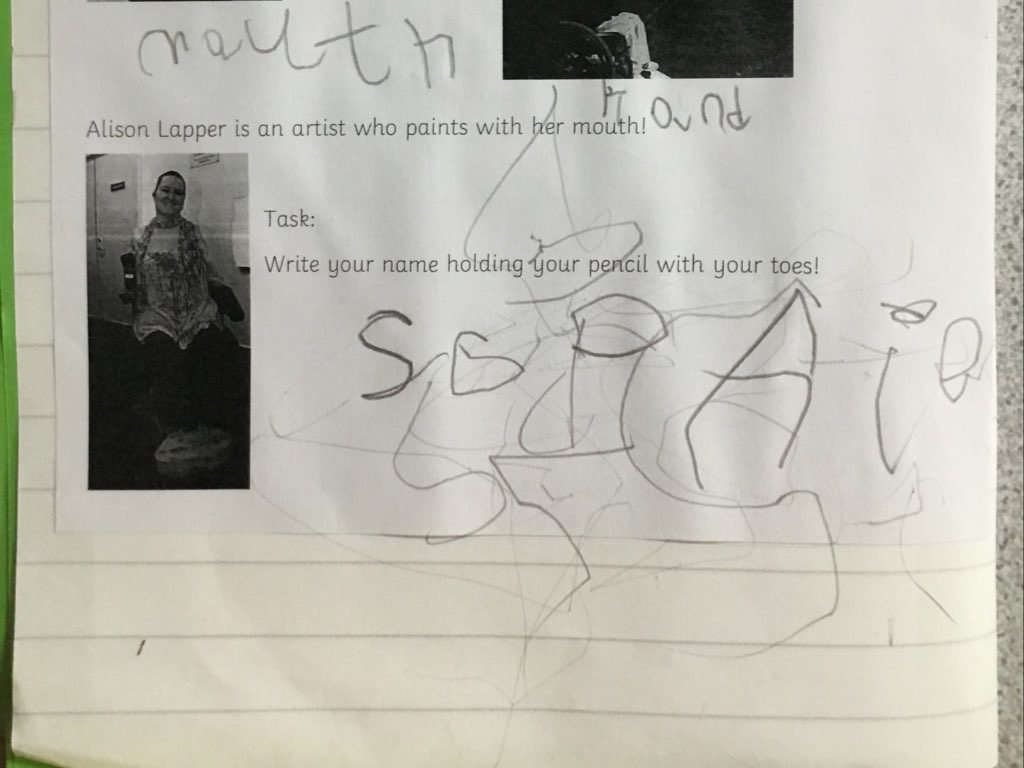 mouth
hand
Alison Lapper is an artist who paints with her mouth!
Task:
Write your name holding your pencil with your toes!